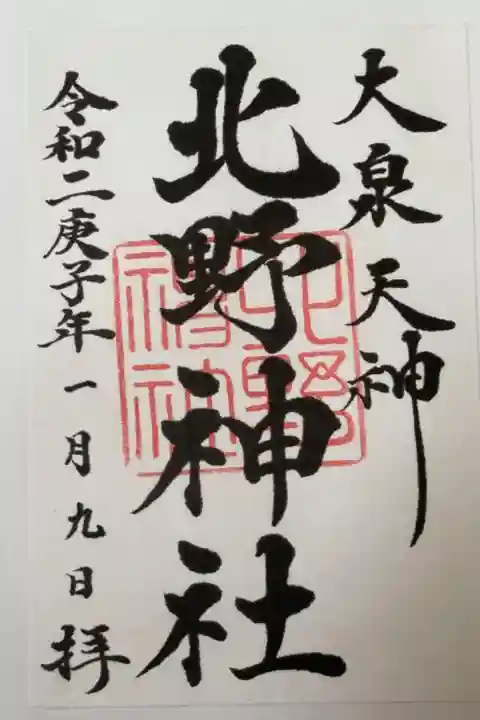 大泉天神
北野神社
北野
神社
令和二庚子年一月九日拝